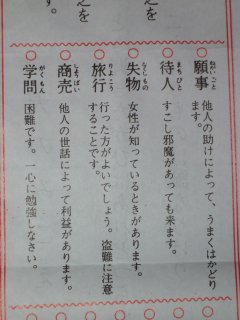 之を
す。
之
○願事 他人の助けによって、うまくはかどり
ます。
○待人 すこし邪魔があっても来ます。
○失物 女性が知っているときがあります。
○旅行 行った方がよいでしょう。盗難に注意
することです。
○商売 他人の世話によって利益があります。
○学問 困難です。一心に勉強しなさい。